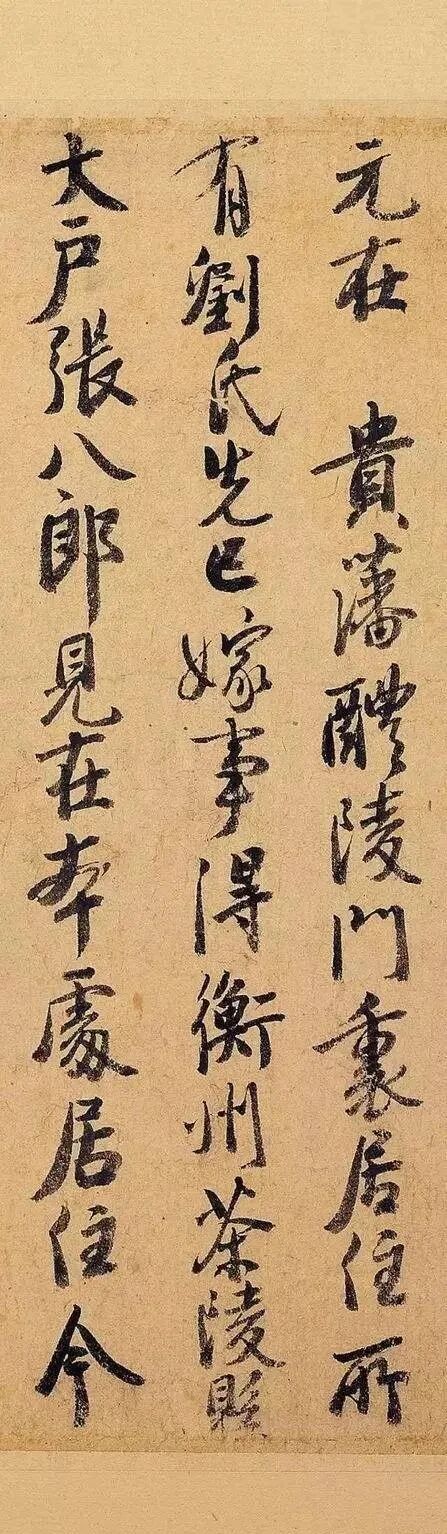 元在 貴藩醴陵門裏居住所
有劉氏先已嫁事得衡州茶陵縣
大戶張八郎見在本處居住今